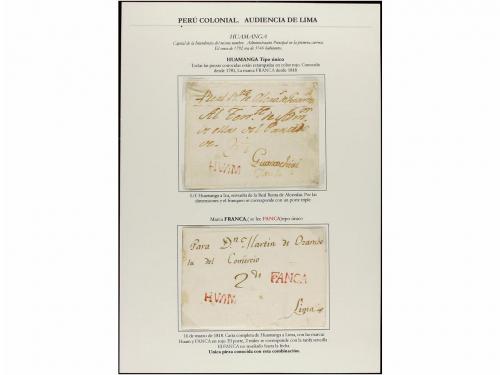 PERÚ COLONIAL. AUDIENCIA DE LIMA
HUAMANGA
Capital de la Intendencia del mismo nombre. Administración Principal en la primera carrera.
El censo de 1792 era de habitantes.
HUAMANGA Tipo único
Todas las piezas conocidas están estampadas en color rojo. Conocida
desde 1791. La marca FRANCA desde 1818
Al
de
HUAM
S/f. Huamanga a Ica, envuelta de la Real Renta de Alcavalas. Por las
dimensiones y el franqueo se corresponde con un porte triple
Marca FRANCA, ( se lee FANCA) tipo único
Para Dn. Martin de
del Comercio
2 FANCA
HUAM
Lima
16 de marzo de 1818. Carta completa de Huamanga a Lima, con las marcas
Huam y FANCA en rojo. El porte, 2 reales se corresponde con la tarifa sencilla
HUFANCA no reseñado hasta la fecha.
Unica pieza conocida con esta combinación.